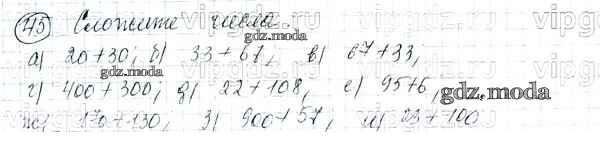 45 Сложите числа
а) 20+30; б) 33+67, в) 67+33,
г) 400+300; д) 22+108, е) 95+6,
ж) 170+130, з) 900+57, и) 23+100
gdz.moda
gdz.moda
gdz.moda